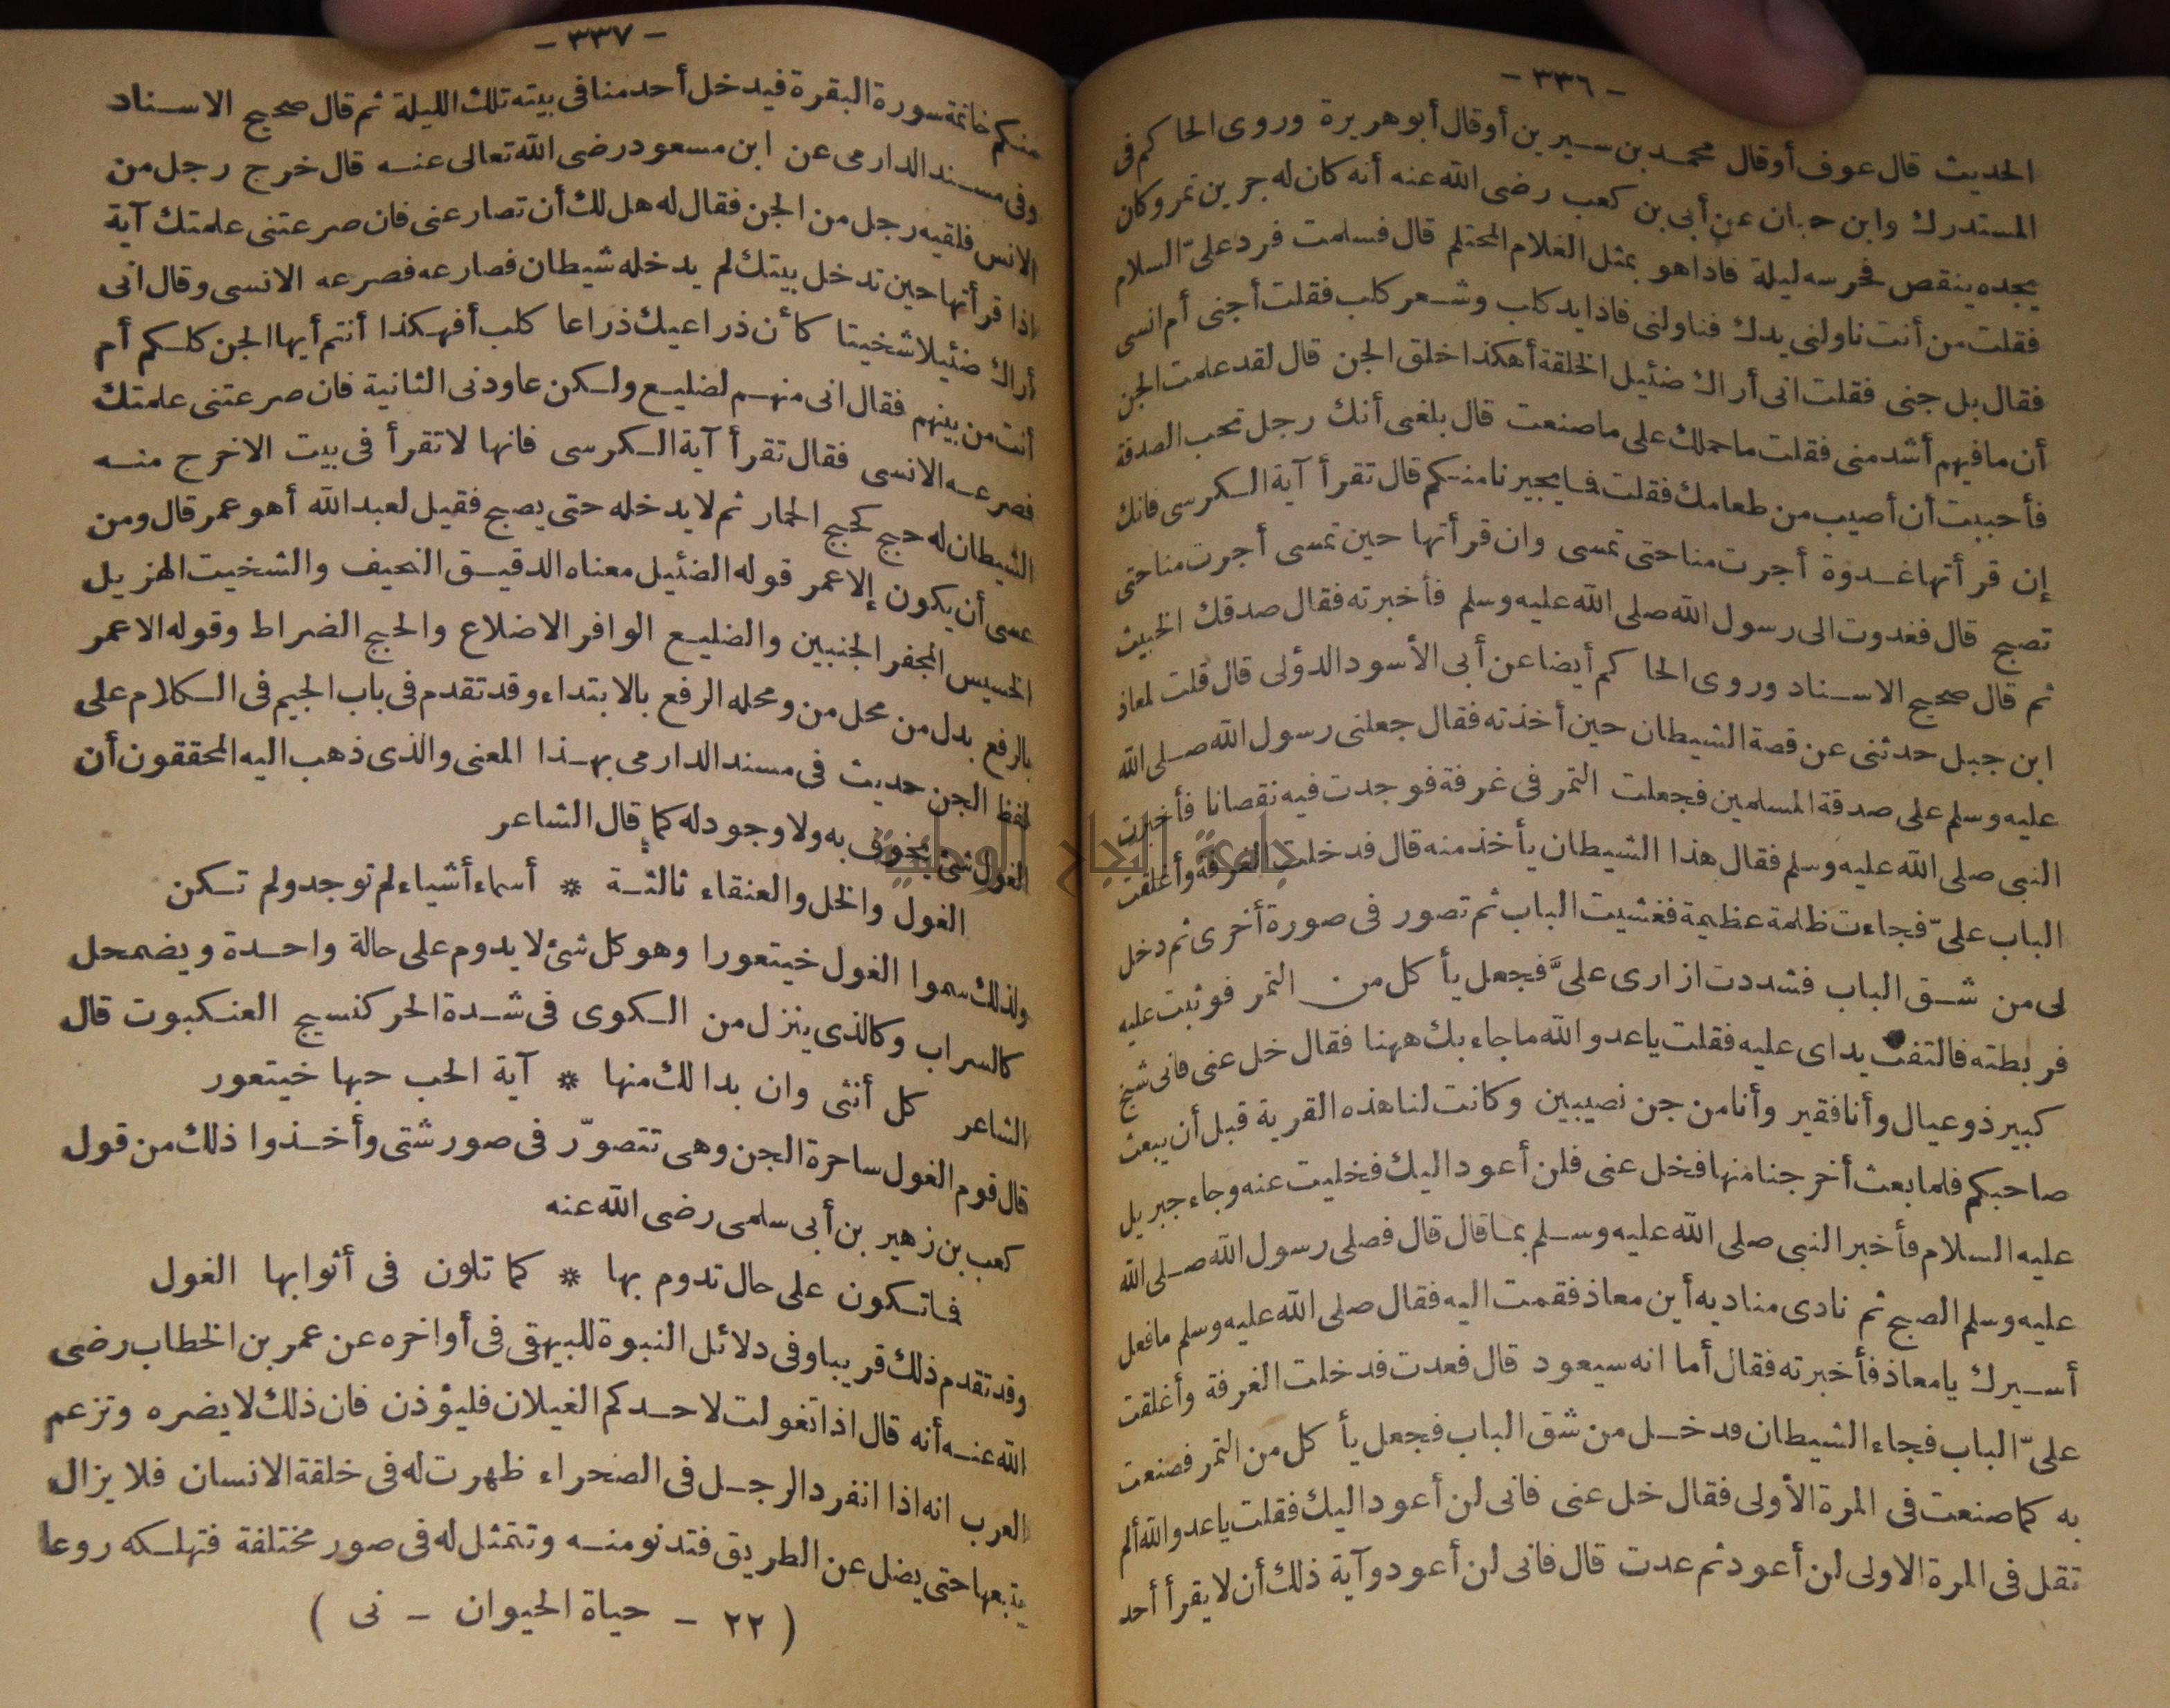 - ٣٣٦ -
الحديث قال عوف أوقال محمد بن سيرين أوقال أبو هريرة وروى الحاكم فى
المستدرك وابن حبان عن أبى بن كعب رضى الله عنه أنه كان له جرين تمر وكان
يجده ينقص فحرسه ليلة فاذا هو بمثل الغلام المحتلم قال فسلمت فرد علىّ السلام
فقلت من أنت ناولنى يدك فناولنى فاذا يد كلب وشعر كلب فقلت أجنى أم انسى
فقال بل جنى فقلت انى أراك ضئيل الخلقة أهكذا خلق الجن قال لقد علمت الجن
أن ما فيهم أشد منى فقلت ما حملك على ما صنعت قال بلغنى أنك رجل تحب الصدقة
فأحببت أن أصيب من طعامك فقلت فما يجيرنا منكم قال تقرأ آية الكرسى فانك
إن قرأتها غدوة أجرت منا حتى تمسى وان قرأتها حين تمسى أجرت منا حتى
تصبح قال فغدوت الى رسول الله صلى الله عليه وسلم فأخبرته فقال صدقك الخبيث
ثم قال صحيح الاسناد وروى الحاكم أيضا عن أبى الأسود الدؤلى قال قلت لمعاذ
ابن جبل حدثنى عن قصة الشيطان حين أخذته فقال جعلنى رسول الله صلى الله
عليه وسلم على صدقة المسلمين فجعلت التمر فى غرفة فوجدت فيه نقصانا فأخبرت
النبى صلى الله عليه وسلم فقال هذا الشيطان يأخذ منه قال فدخلت الغرفة وأغلقت
الباب علىّ فجاءت ظلمة عظيمة فغشيت الباب ثم تصور فى صورة أخرى ثم دخل
لى من شق الباب فشددت ازارى علىَّ فجعل يأكل من التمر فوثبت عليه
فربطته فالتفت يداى عليه فقلت يا عدو الله ما جاء بك ههنا فقال خل عنى فانى شيخ
كبير ذو عيال وأنا فقير وأنا من جن نصيبين وكانت لنا هذه القرية قبل أن يبعث
صاحبكم فلما بعث أخرجنا منها فخل عنى فلن أعود اليك فخليت عنه وجاء جبريل
عليه السلام فأخبر النبى صلى الله عليه وسلم بما قال قال فصلى رسول الله صلى الله
عليه وسلم الصبح ثم نادى مناديه أين معاذ فقمت اليه فقال صلى الله عليه وسلم ما فعل
أسيرك يا معاذ فأخبرته فقال أما انه سيعود قال فعدت فدخلت الغرفة وأغلقت
علىّ الباب فجاء الشيطان فدخل من شق الباب فجعل يأكل من التمر فصنعت
به كما صنعت فى المرة الأولى فقال خل عنى فانى لن أعود اليك فقلت يا عدو الله ألم
تقل فى المرة الاولى لن أعود ثم عدت قال فانى لن أعود وآية ذلك أن لا يقرأ أحد
- ٣٣٧ -
منكم خاتمة سورة البقرة فيدخل أحد منا فى بيته تلك الليلة ثم قال صحيح الاسناد
وفى مسند الدارمى عن ابن مسعود رضى الله تعالى عنه قال خرج رجل من
الانس فلقيه رجل من الجن فقال له هل لك أن تصارعنى فان صرعتنى علمتك آية
اذا قرأتها حين تدخل بيتك لم يدخله شيطان فصارعه فصرعه الانسى وقال انى
أراك ضئيلا شخيتا كأن ذراعيك ذراعا كلب أفهكذا أنتم أيها الجن كلكم أم
أنت من بينهم فقال انى منهم لضليع ولكن عاودنى الثانية فان صرعتنى علمتك
فصرعه الانسى فقال تقرأ آية الكرسى فانها لا تقرأ فى بيت الا خرج منه
الشيطان له حبج كحبج الحمار ثم لا يدخله حتى يصبح فقيل لعبد الله أهو عمر قال ومن
عسى أن يكون إلا عمر قوله الضئيل معناه الدقيق النحيف والشخيت الهزيل
الخسيس المجفر الجنبين والضليع الوافر الاضلاع والحبج الضراط وقوله الا عمر
بالرفع بدل من محل من ومحله الرفع بالابتداء وقد تقدم فى باب الجيم فى الكلام على
لفظ الجن حديث فى مسند الدارمى بهذا المعنى والذى ذهب اليه المحققون أن
الغول شئ يخوف به ولا وجود له كما قال الشاعر
الغول والخل والعنقاء ثالثة * أسماء أشياء لم توجد ولم تكن
ولذلك سموا الغول خيتعورا وهو كل شئ لا يدوم على حالة واحدة ويضمحل
كالسراب وكالذى ينزل من الكوى فى شدة الحر كنسيج العنكبوت قال
الشاعر كل أنثى وان بدا لك منها * آية الحب حبها خيتعور
قال قوم الغول ساحرة الجن وهى تتصوّر فى صور شتى وأخذوا ذلك من قول
كعب بن زهير بن أبى سلمى رضى الله عنه
فما تكون على حال تدوم بها * كما تلون فى أثوابها الغول
وقد تقدم ذلك قريبا وفى دلائل النبوة للبيهقى فى أواخره عن عمر بن الخطاب رضى
الله عنه أنه قال اذا تغولت لاحدكم الغيلان فليؤذن فان ذلك لا يضره وتزعم
العرب انه اذا انفرد الرجل فى الصحراء ظهرت له فى خلقة الانسان فلا يزال
يتبعها حتى يضل عن الطريق فتدنو منه وتتمثل له فى صور مختلفة فتهلكه روعا
( ٢٢ - حياة الحيوان - نى )
جامعة النجاح الوطنية